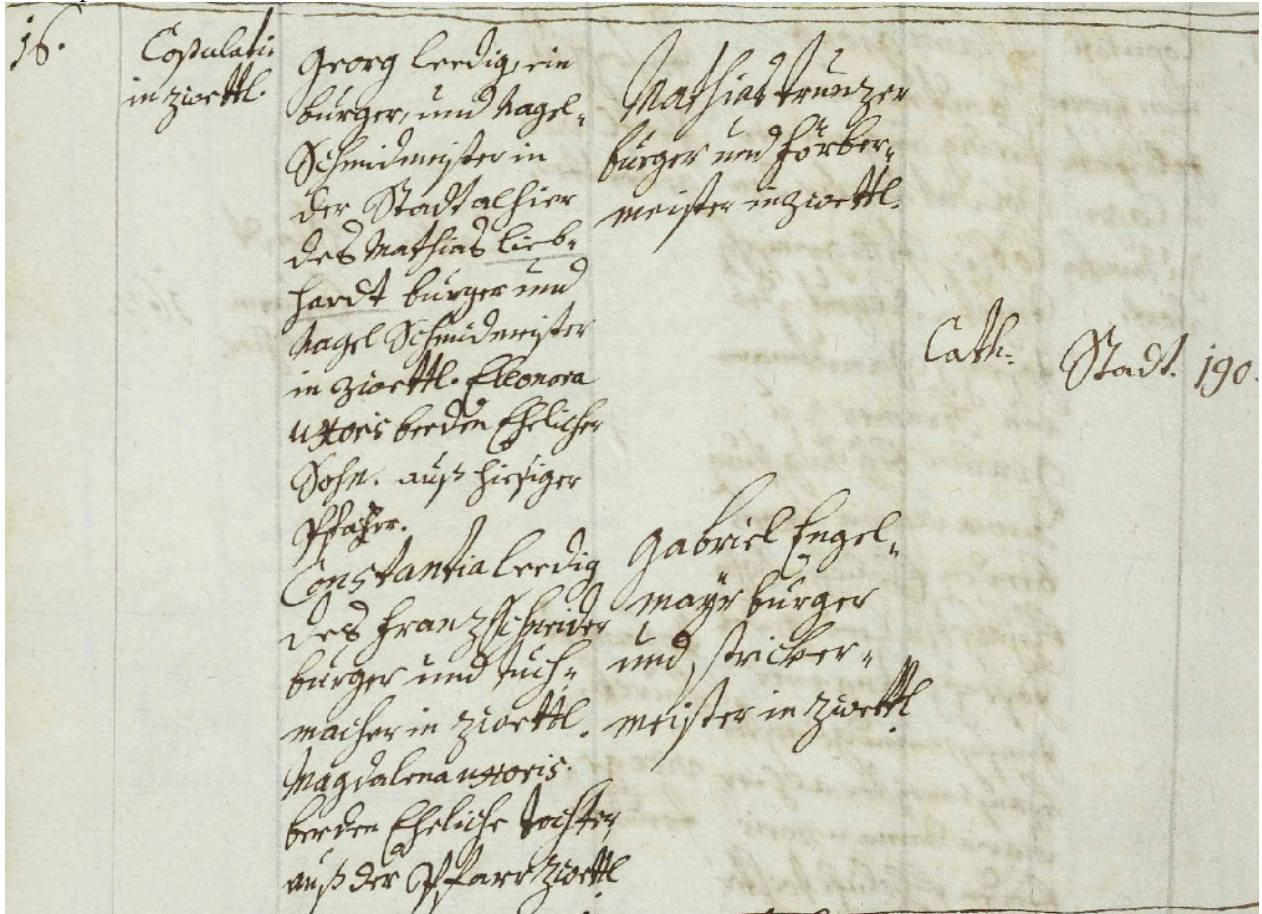 16.
Copulatio
in Zwettl.
Georg leedig, ein
burger, und Nagel-
Schmidmeister in
der Stadt alhier
des Mathias Lieb-
hardt burger und
Nagel Schmidmeister
in Zwettl. Elleonora
uxoris beeden Ehelicher
Sohn. auß hiesiger
Pfarr.
Constantia leedig
des Franz Schneider
burger und tuch-
macher in Zwettl.
Magdalena uxoris.
beeden Eheliche tochter
auß der Pfarr Zwettl
Mathias trunzer
burger und förber-
meister in Zwettl.
Gabriel Engel-
mayr burger
und stricker-
meister in Zwettl.
Cath:
Stadt. 190.